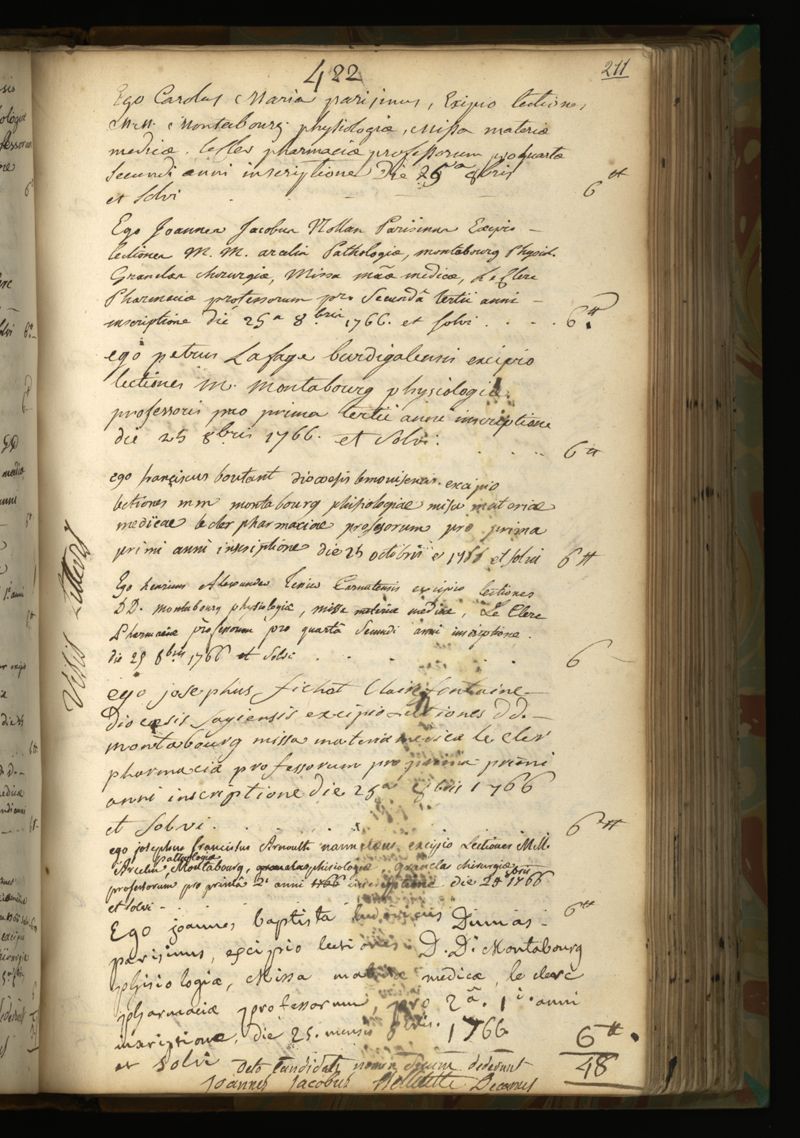 422
211
Ego Carolus Maria parisinus, Excipio lectiones
M.M. Montabourg physiologiæ, Missa materiæ
medicæ. professorum pro quarta
secundi anni inscriptione Die 25a 8bris
et solvi 6tt
Ego Joannes Jacobus Nollan Parisinus Excipio
lectiones M. M. arcelin Pathologiæ, montabourg Physiol.
Chirurgiæ, Missa mãæ medicæ, Le Clerc
Pharmaciæ professorum pro Secundâ tertii anni
inscriptione die 25a 8bris 1766. et solvi 6tt
ego petrus Lafage burdigalensis excipio
lectiones M. Montabourg physiologiæ
professoris pro prima tertii anni inscriptione
die 25 8bris 1766. et solvi. 6tt
ego franciscus boutant diocoesis excipio
lectiones mm montabourg phisiologiæ misa materiæ
medicæ pharmaciæ professorum pro prima
primi anni inscriptione die 25 octobris 1766 et solvi 6tt
Visis Litteris
Ego henricus Alexander Carnutensis excipio lectiones
DD. Montabourg physiologiæ, missa materiæ medicæ, Le Clerc
Pharmaciæ professorum pro quartâ Secundi anni inscriptione.
die 25 8bris 1766 et Solvi 6
ego josephus fichet Clairfontaine
Diocæsis sagiensis excipio lectiones dd.
montabourg missa materia medicæ le Cler
pharmaciæ professorum pro prima primi
anni inscriptione Die 25a 8bris 1766
et Solvi. 6tt
ego josephus franciscus Arnoult excipio Lectiones MM.
Arcelin pathologiæ, Montabourg, phisiologiæ, chirurgiæ
professorum pro primâ 2i anni inscriptione die 24 8bris 1766
et solvi 6tt
Ego joannes baptista Dumas
parisinus, excipio lectiones D.Di Montabourg
phisiologiæ, Missa materiæ medicæ, le clerc
pharmaciæ professorum, pro 2â. 1i. anni
inscriptione, die 25. mensis 8bris. 1766
et solvi 6tt
Octo Candidati nomen suum dederunt 48
Joannes Jacobus Belletête Decanus